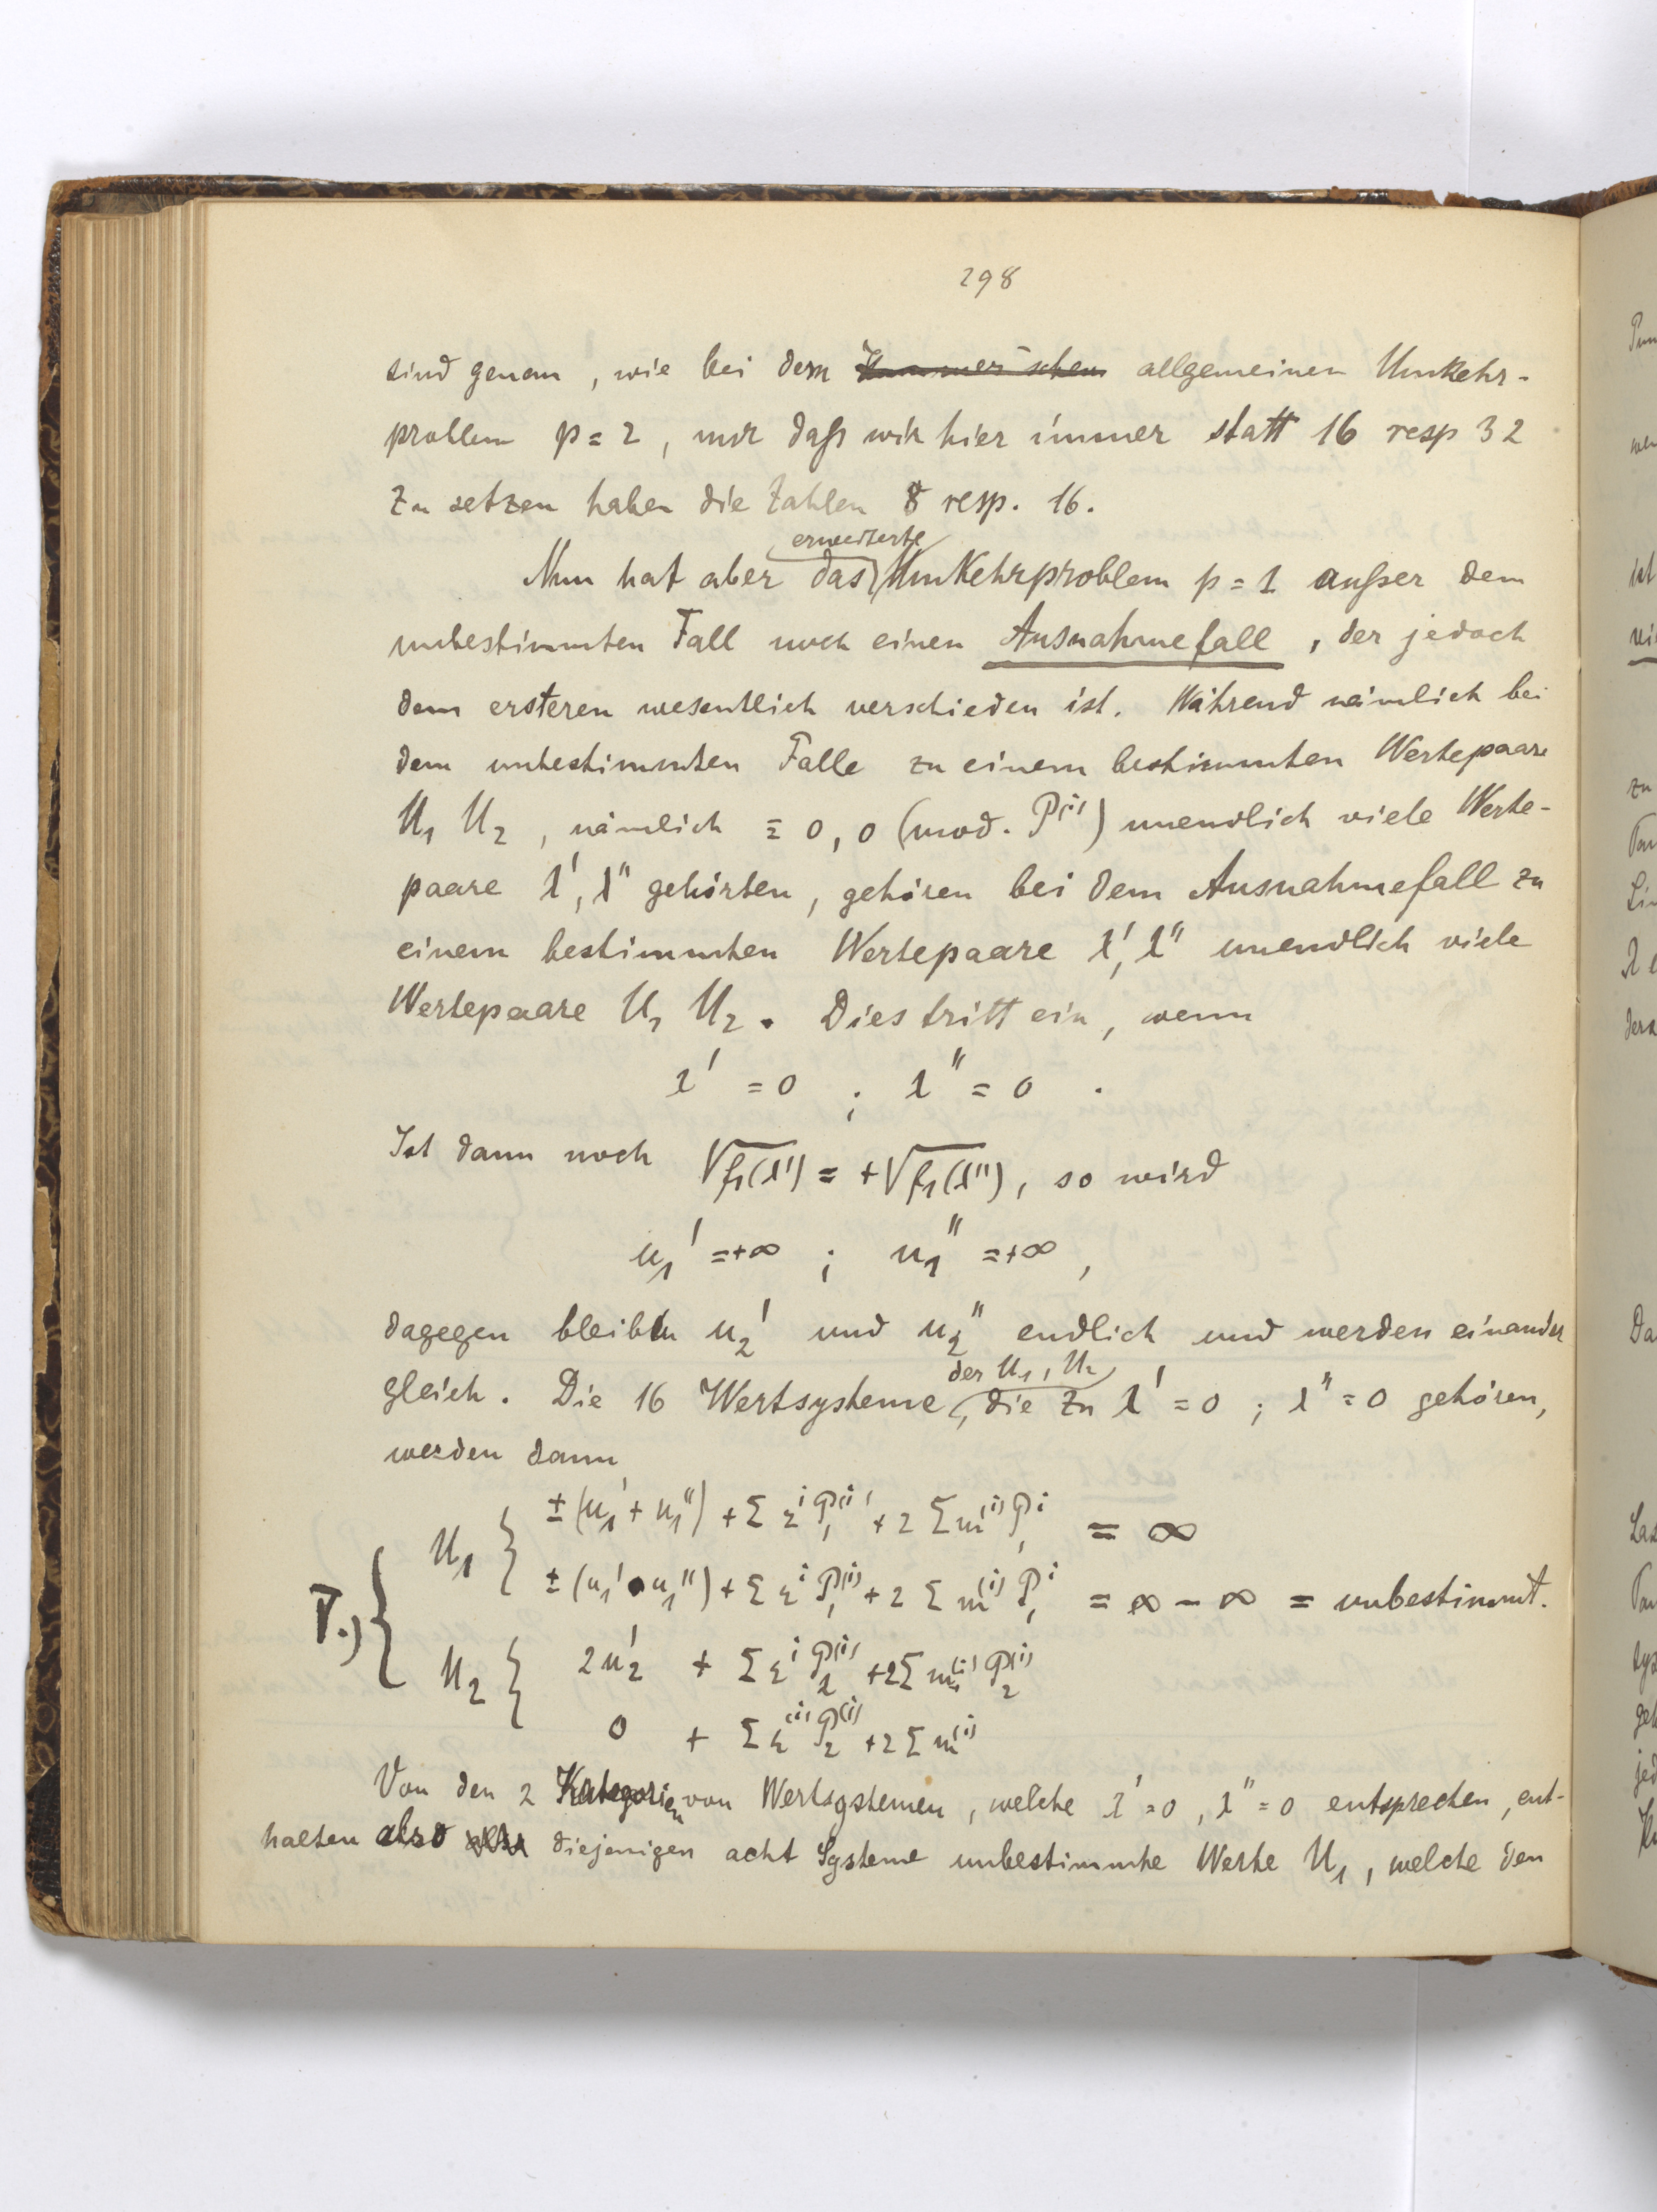 298
sind genau, wie bei dem Kummer'schen allgemeinen Umkehr-
problem p = 2, nur daß wir hier immer statt 16 resp 32
zu setzen haben die Zahlen 8 resp. 16.
Nun hat aber das erweiterte Umkehrproblem p = 1 außer dem
unbestimmten Fall noch einen Ausnahmefall, der jedoch
dem ersteren wesentlich verschieden ist. Während nämlich bei
dem unbestimmten Falle zu einem bestimmten Wertepaare
U₁ U₂, nämlich ≡ 0, 0 (mod. P⁽ⁱ⁾) unendlich viele Werte-
paare λ', λ'' gehörten, gehören bei dem Ausnahmefall zu
einem bestimmten Wertepaare λ', λ'' unendlich viele
Wertepaare U₁ U₂. Dies tritt ein, wenn
λ' = 0 ; λ'' = 0 .
Ist dann noch √f₁(λ') = +√f₁(λ''), so wird
u₁' = +∞ ; u₁'' = +∞,
dagegen bleiben u₂' und u₂'' endlich und werden einander
gleich. Die 16 Wertsysteme der U₁, U₂, die zu λ' = 0 ; λ'' = 0 gehören,
werden dann
U₁ { ±(u₁' + u₁'') + Σ εⁱ P₁⁽ⁱ⁾ + 2 Σ m⁽ⁱ⁾ P₁ⁱ = ∞
±(u₁' - u₁'') + Σ εⁱ P₁⁽ⁱ⁾ + 2 Σ m⁽ⁱ⁾ P₁ⁱ = ∞ - ∞ = unbestimmt.
I.) {
U₂ { 2u₂' + Σ εⁱ P₂⁽ⁱ⁾ + 2 Σ m⁽ⁱ⁾ P₂⁽ⁱ⁾
0 + Σ ε⁽ⁱ⁾ P₂⁽ⁱ⁾ + 2 Σ m⁽ⁱ⁾
Von den 2 Kategorien von Wertsystemen, welche λ' = 0, λ'' = 0 entsprechen, ent-
halten also diejenigen acht Systeme unbestimmte Werte U₁, welche den